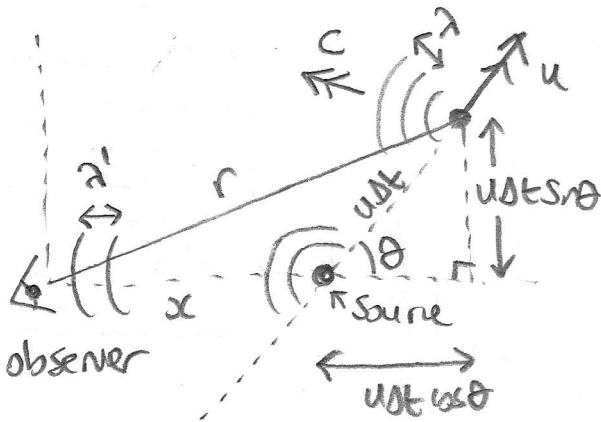 c
λ
u
r
uΔt
uΔt Sinθ
λ'
θ
x
Source
observer
uΔt cosθ